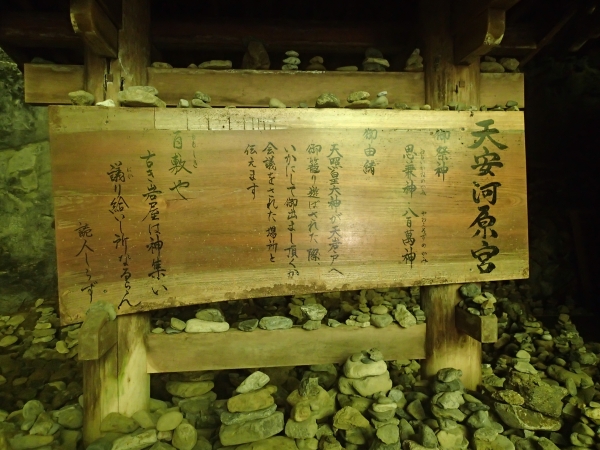 天安河原宮
御祭神
思兼神 八百萬神
御由緒
天照皇大神が天岩戸へ
御籠り遊ばされた際
いかにして御出まし頂くか
会議をされた場所と
伝えます
百敷や
古き岩屋は神集い
議り給いし所なるらん
読人しらず